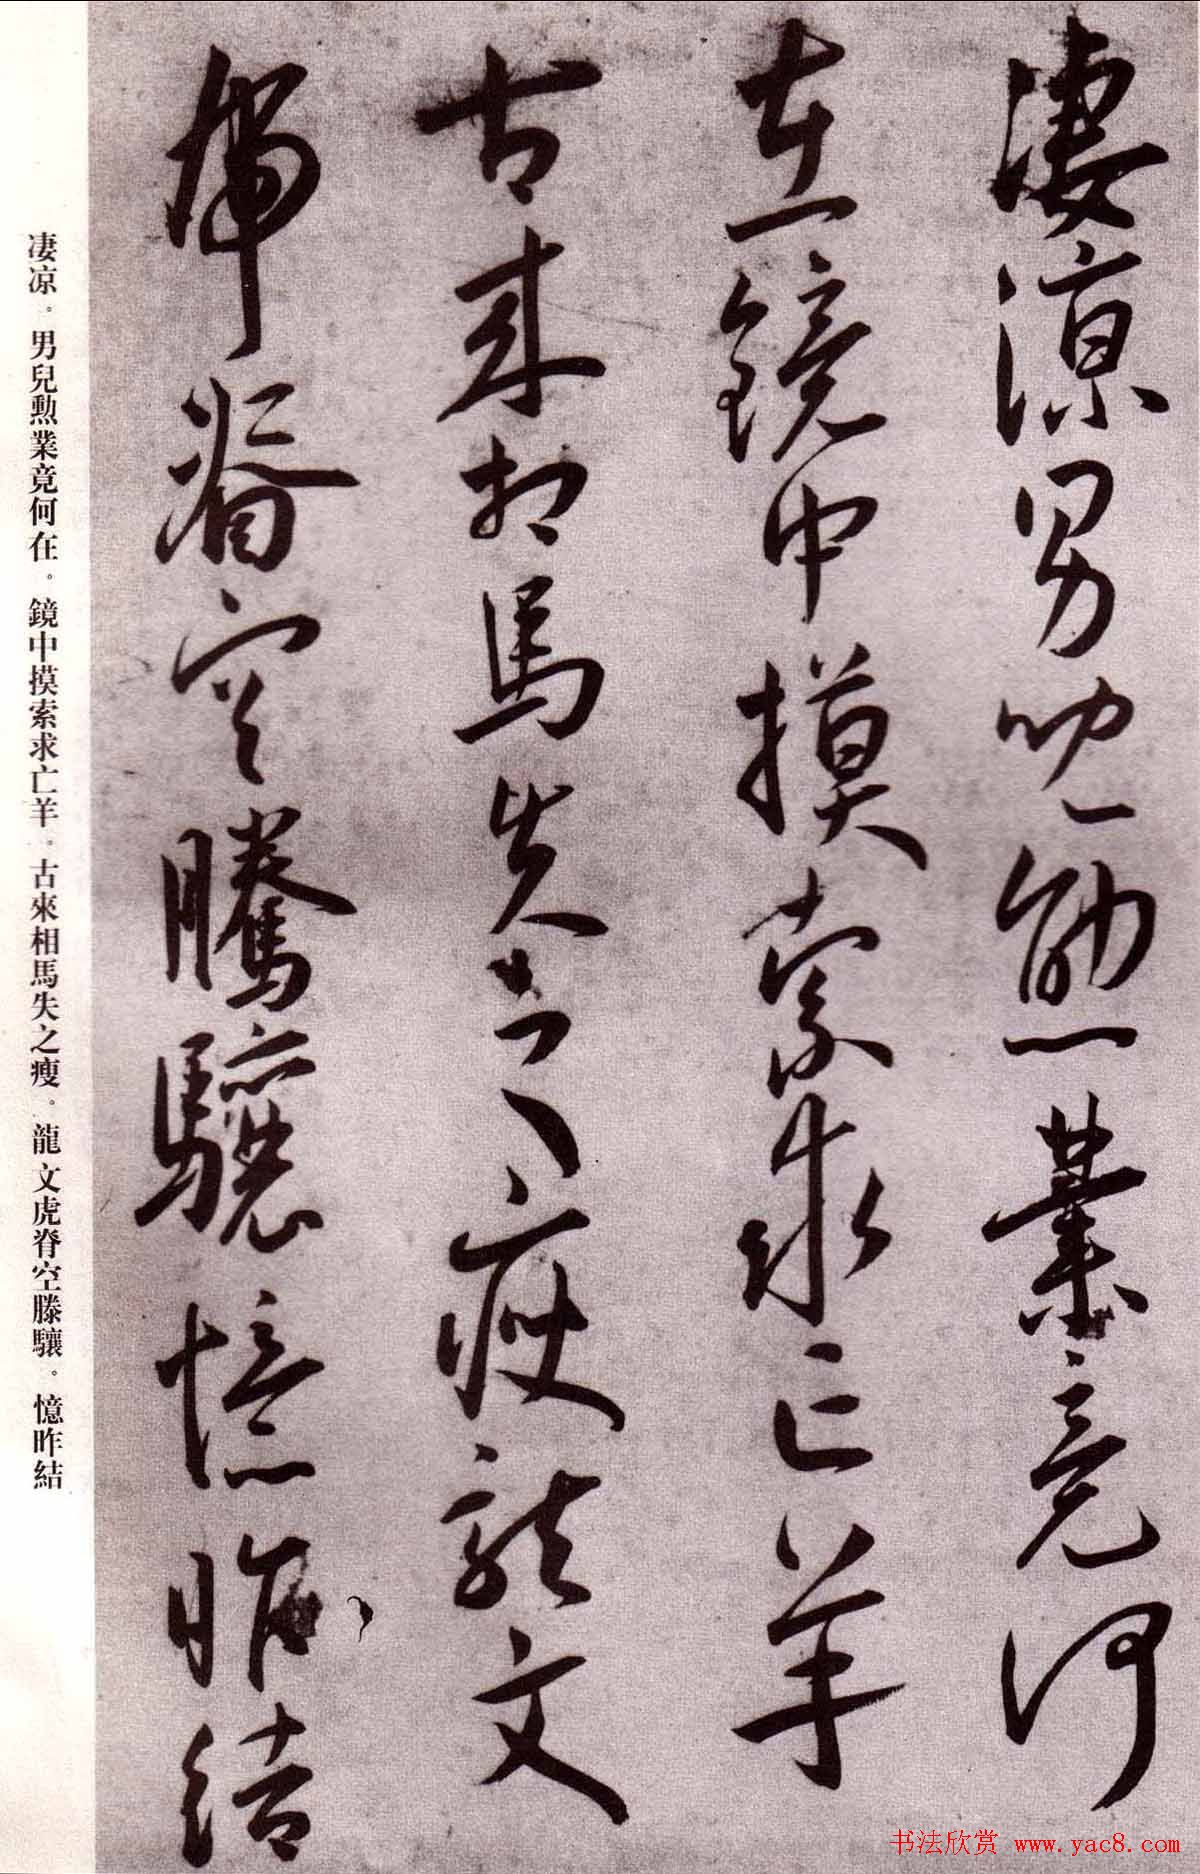 淒凉男兒勳業竟何
在鏡中摸索求亡羊
古來相馬失之瘦龍文
虎脊空騰驤憶昨結
凄凉。男兒勳業竟何在。鏡中摸索求亡羊。古來相馬失之瘦。龍文虎脊空騰驤。憶昨結
书法欣赏 www.yac8.com